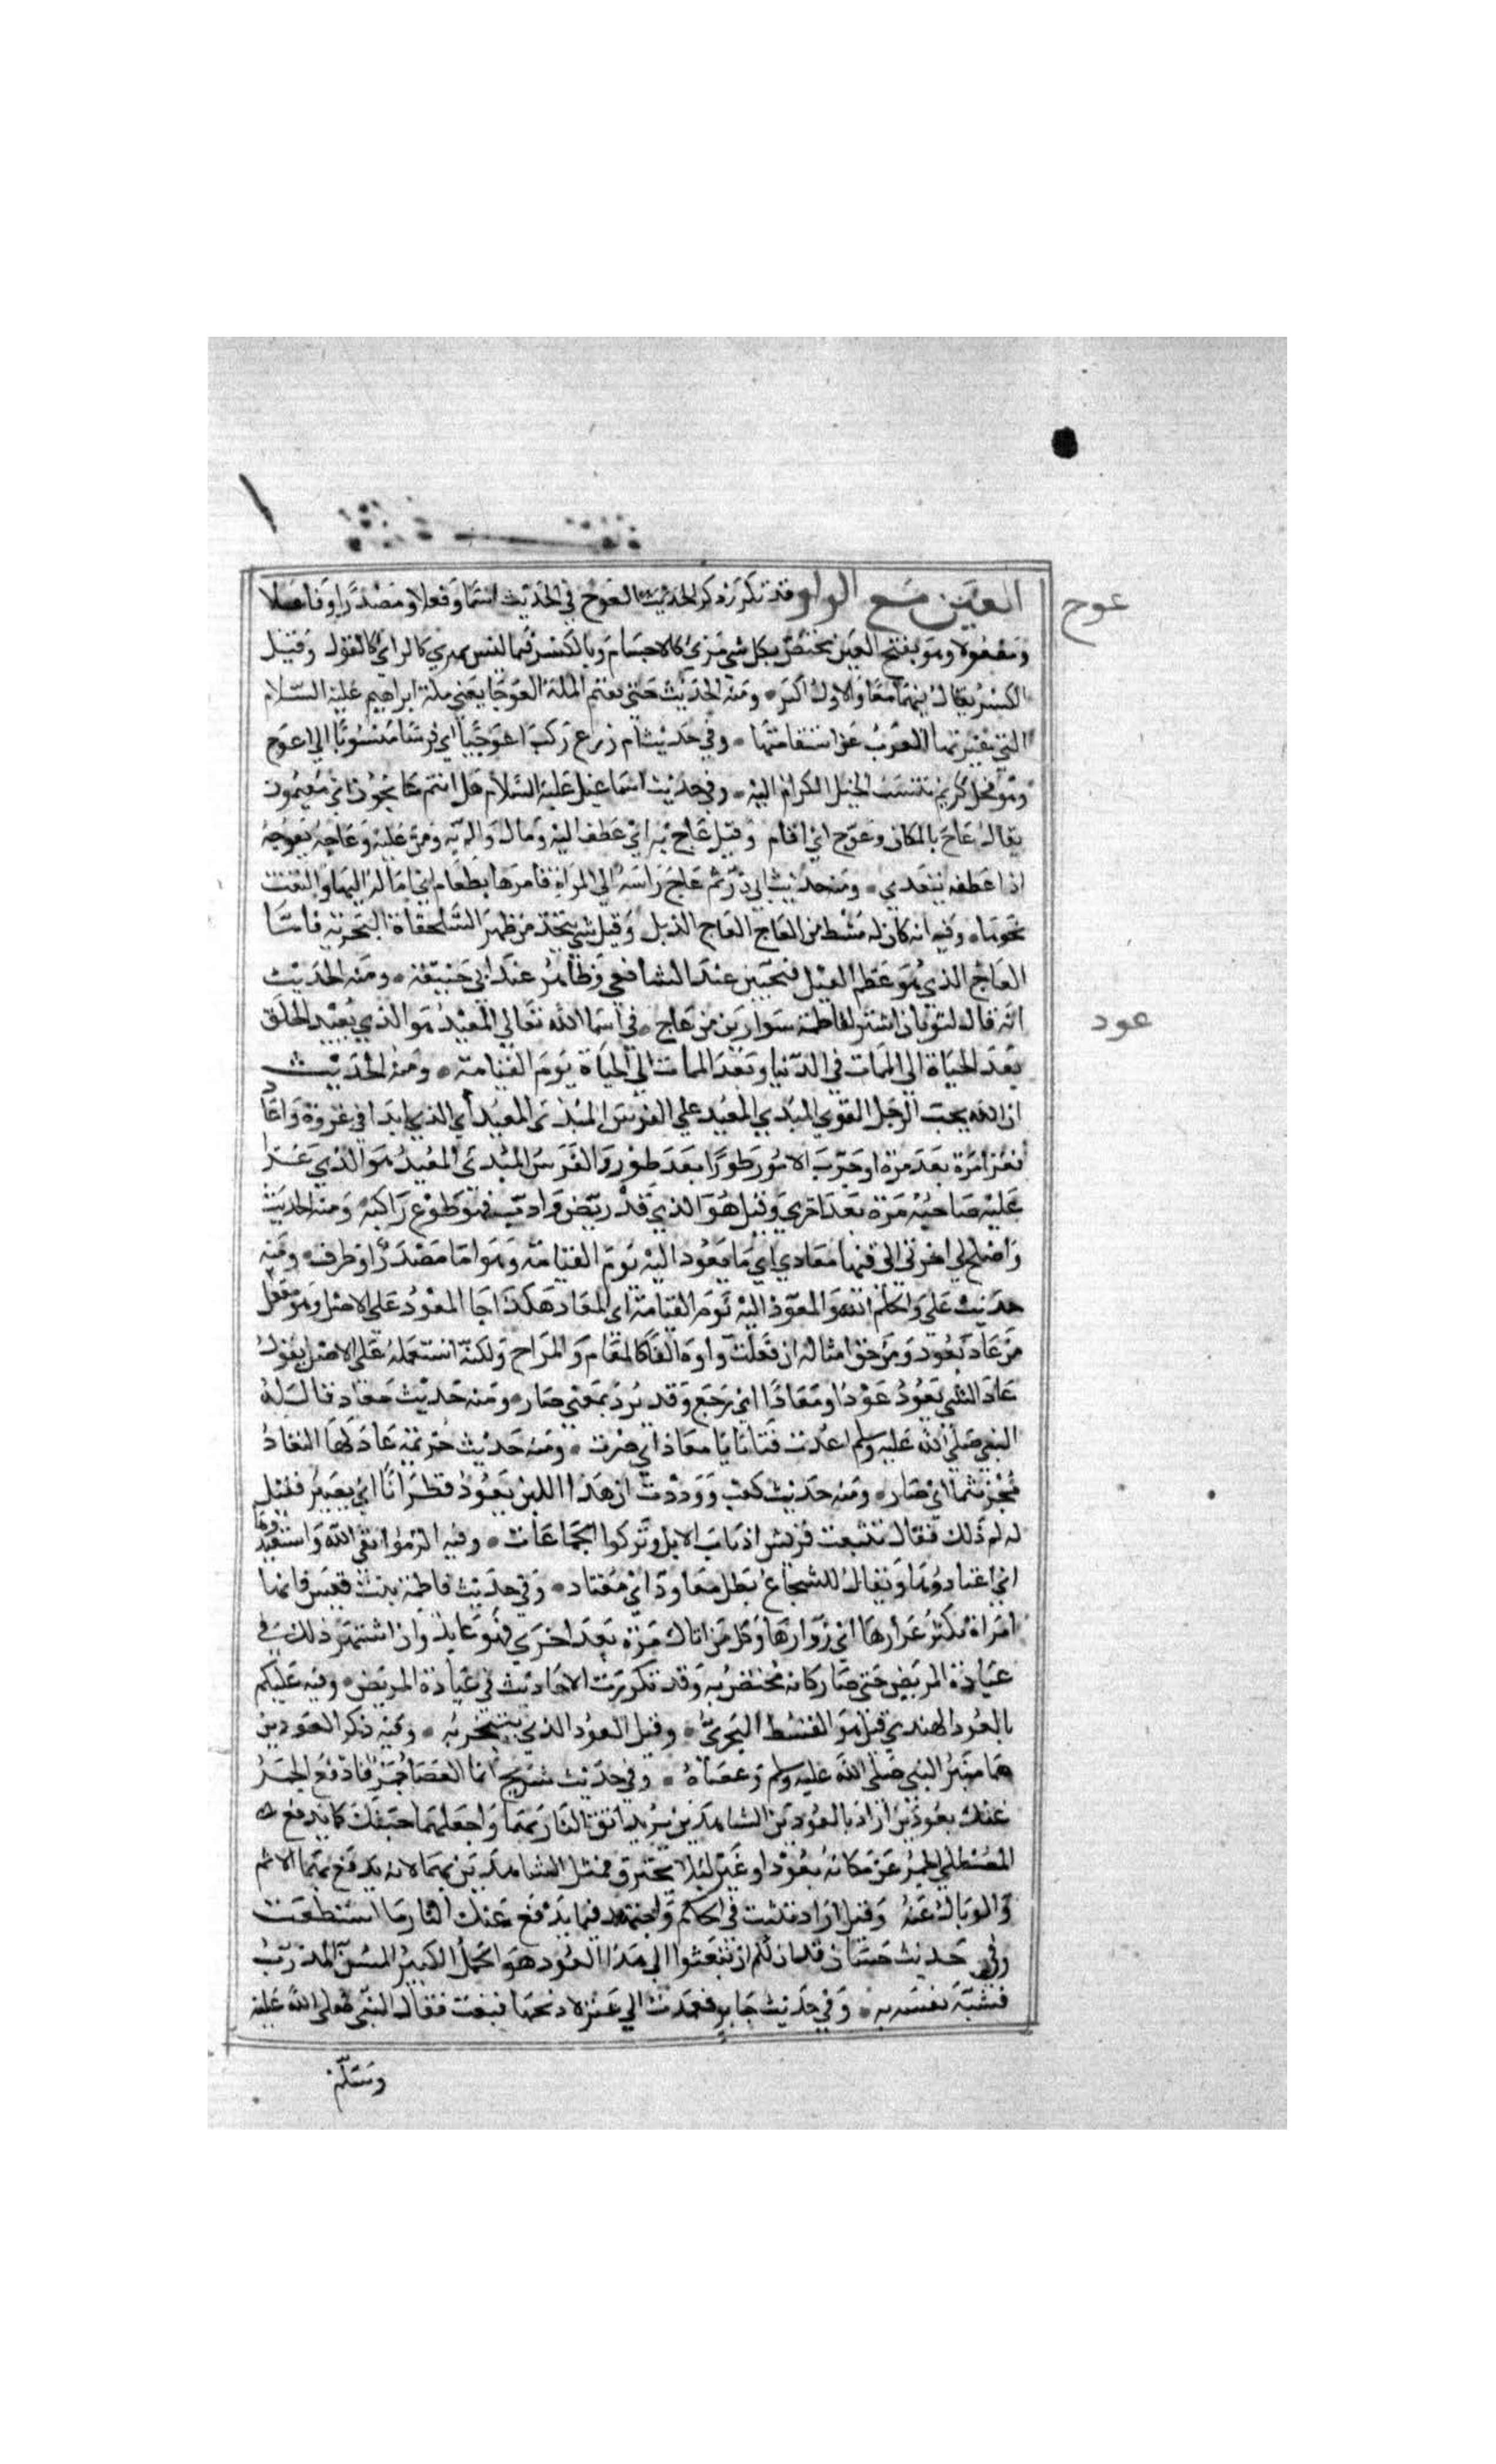 العين مع الواو قد تكرر ذكر الحديث العوج في الحديث اسما وفعلا ومصدرا وفاعلا
عوج
ومفعولا وهو بفتح العين مختص بكل شي مرئي كالاجسام وبالكسر فيما ليس بمري كالراي كالقول وقيل
الكسر يقال فيهما معا والاول اكثر ومنه الحديث حتى يقيم الملة العوجا يعني ملة ابراهيم عليه السلام
التي غيرتها العرب عن استقامتها وفي حديث ام زرع ركب اعوجيا اي فرسا منسوبا الي اعوج
وهو فحل كريم تنسب الخيل الكرام اليه وفي حديث اسماعيل عليه السلام هل انتم عايجون اي مقيمون
يقال عاج بالمكان وعوج اي اقام وقيل عاج به اي عطف اليه ومال والم به ومر عليه وعاجه يعوجه
اذا عطفه يتعدي ومنه حديث ابي ذر ثم عاج راسه الي المراة فامرها بطعام اي اماله اليها والتفت
نحوها وفيه انه كان له مشط من العاج العاج الذبل وقيل شي يتخذ من ظهر السلحفاة البحرية فاما
العاج الذي هو عظم الفيل فنجس عند الشافعي وطاهر عند ابي حنيفة ومنه الحديث
انه قال لثوبان اشتر لفاطمة سوارين من عاج في اسما الله تعالي المعيد هو الذي يعيد الخلق
عود
بعد الحياة الي الممات في الدنيا وبعد الممات الي الحياة يوم القيامة ومنه الحديث
ان الله يحب الرجل القوي المبدي المعيد علي الفرس المبدئ المعيد اي الذي ابدا في غزوة واعاد
فغزا مرة بعد مرة او جرب الامور طورا بعد طور والفرس المبدئ المعيد هو الذي غزا
عليه صاحبه مرة بعد اخري وقيل هو الذي قد ريض وادب فهو طوع راكبه ومنه الحديث
واصلح لي اخرتي التي فيها معادي اي ما يعود اليه يوم القيامة وهو اما مصدر او ظرف ومنه
حديث علي والحكم الله والمعود اليه يوم القيامة اي المعاد هكذا جا المعود على الاصل وهو مفعل
من عاد يعود ومن حق امثاله ان تقلب واوه الفا كالمقام والمراح ولكنه استعمله على الاصل يقول
عاد الشي يعود عودا ومعادا اي رجع وقد يرد بمعني صار ومنه حديث معاذ قال له
النبي صلي الله عليه وسلم اعدت فتانا يا معاذ اي صرت ومنه حديث خزيمة عاد لها النقاد
مجرنثما اي صار ومنه حديث كعب ووددت ان هذا اللبن يعود قطرانا اي يصير فقيل
له لم ذلك فقال تتبعت قريش اذناب الابل وتركوا الجماعات وفيه الزموا تقي الله واستعيدوها
اي اعتادوها ويقال للشجاع بطل معاود اي معتاد وفي حديث فاطمة بنت قيس فانها
امراة يكثر عوادها اي زوارها وكل من اتاك مرة بعد اخري فهو عايد وان اشتهر ذلك في
عيادة المريض حتي صار كانه مختص به وقد تكررت الاحاديث في عيادة المريض وفيه عليكم
بالعود الهندي قيل هو القسط البحري وقيل العود الذي يتبخر به وفيه ذكر العودين
هما منبر النبي صلى الله عليه وسلم وعصاه وفي حديث شريح انما القضا جمر فادفع الجمر
عنك بعودين اراد بالعودين الشاهدين يريد اتق النار بهما واجعلهما جنتك كما يدفع
المصطلي الجمر عن مكانه بعود او غيره ليلا يحترق فمثل الشاهدين بهما لانه يدفع بهما الاثم
والوبال عنه وقيل اراد تثبت في الحكم واجتهد فيما يدفع عنك النار ما استطعت
وفي حديث حسان قد ان لكم ان تبعثوا الي هذا العود هو الجمل الكبير المسن المدرب
فشبه نفسه به وفي حديث جابر فعمدت الي عنز لاذبحها فثغت فقال النبي صلى الله عليه
وسلم